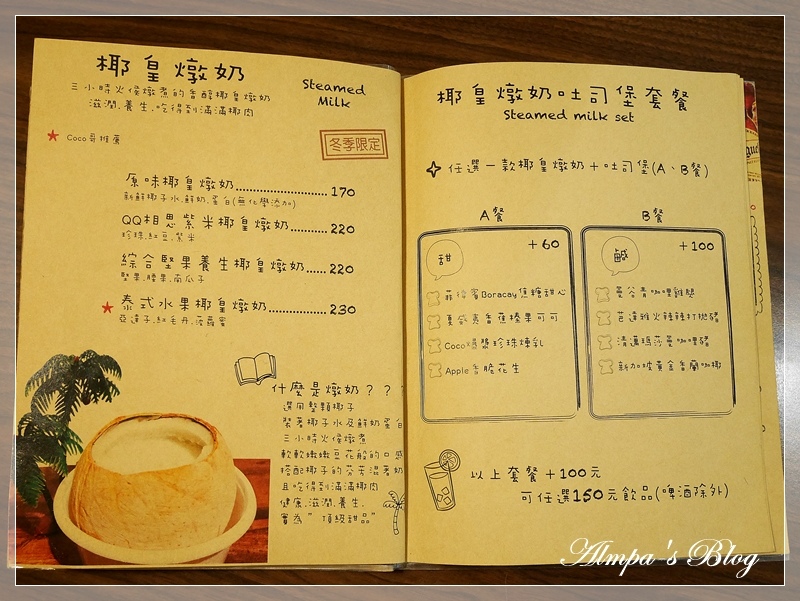 椰皇燉奶
Steamed
Milk
三小時火侯燉煮的香醇椰皇燉奶
滋潤.養生.吃得到滿滿椰肉
Coco哥推薦
冬季限定
原味椰皇燉奶..................... 170
新鮮椰子水.鮮奶.蛋白(無化學添加)
QQ相思紫米椰皇燉奶....... 220
珍珠.紅豆.紫米
綜合堅果養生椰皇燉奶..... 220
堅果.腰果.南瓜子
泰式水果椰皇燉奶............... 230
亞達子.紅毛丹.波羅蜜
什麼是燉奶???
選用整顆椰子
緊著椰子水及鮮奶蛋白
三小時火侯燉煮
軟軟嫩嫩豆花般的口感
搭配椰子的芬芳混著奶
且吃得到滿滿椰肉
健康.滋潤.養生.
實為"頂級甜品"
椰皇燉奶吐司堡套餐
Steamed milk set
任選一款椰皇燉奶+吐司堡(A、B餐)
A餐
甜
+60
菲律賓Boracay焦糖甜心
夏威夷香蕉榛果可可
Coco爆漿珍珠煉乳
Apple香脆花生
B餐
鹹
+100
曼谷青咖哩雞腿
芭達雅火辣辣打拋豬
清邁瑪莎曼咖哩豬
新加坡黃金香蘭咖椰
以上套餐+100元
可任選150元飲品(啤酒除外)
Almpa's Blog